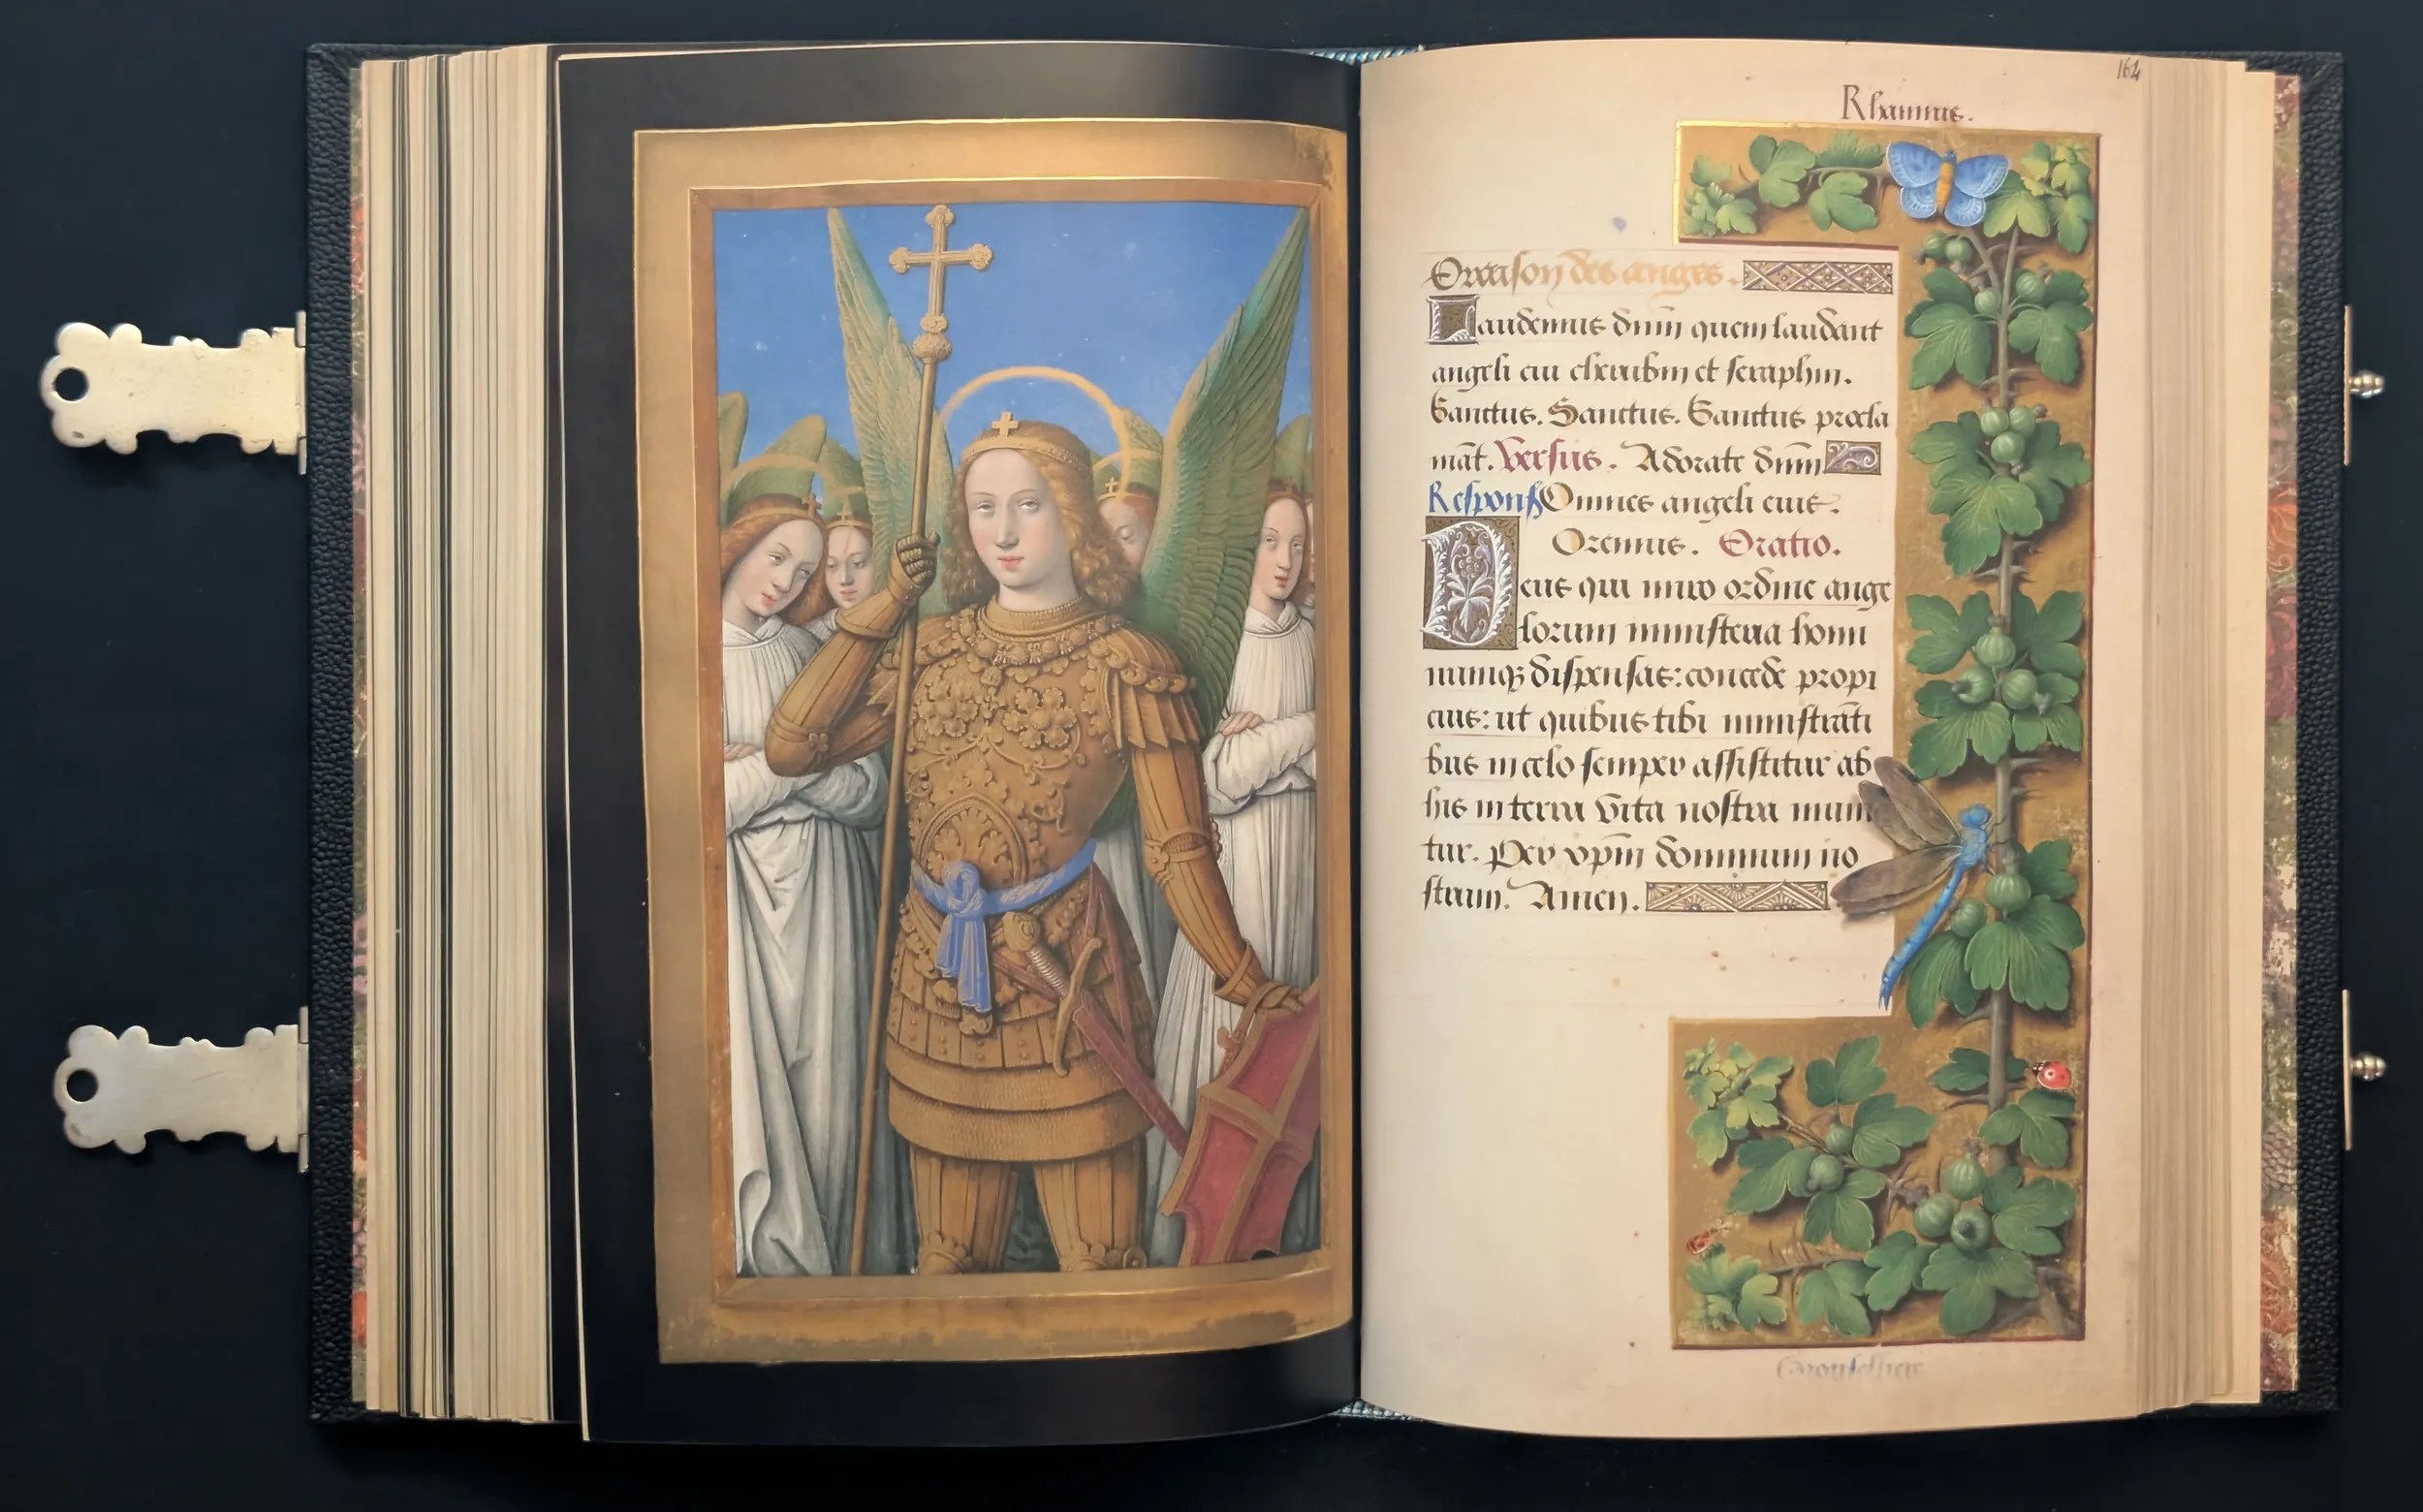 164
Rhamnus.
Oraison des anges.
Laudemus dnm̄ quem laudant
angeli cui cherubin et seraphin.
Sanctus. Sanctus. Sanctus procla
māt. Versus. Adorate dnm̄
Respons Omnes angeli eius.
Oremus. Oratio.
Deus qui miro ordine ange
lorum ministeria homi
numqꝫ dispensas: concede propi
cius: ut quibus tibi ministrāti
bus in celo semper assistitur ab
his in terra vita nostra muni
tur. Per xp̄m dominum no
strum. Amen.
Grouselhier